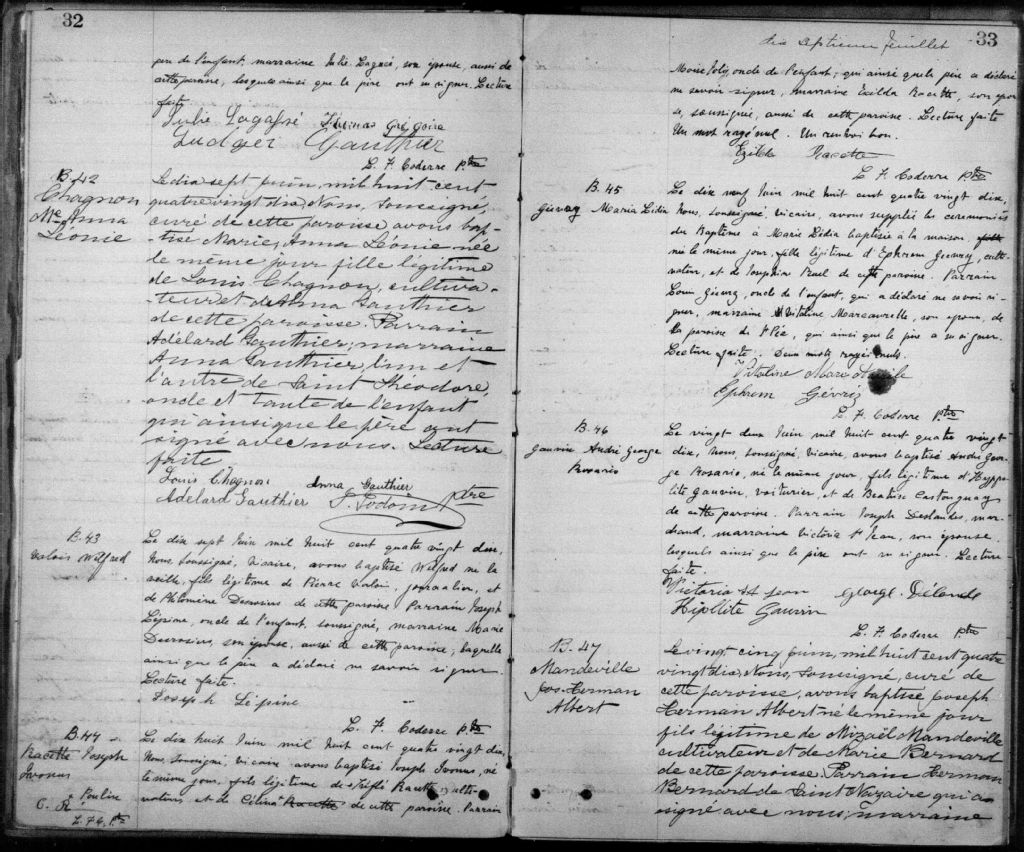 32
père de l'enfant, marraine Julie Lagacé, son épouse, aussi de
cette paroisse, lesquels ainsi que le père ont su signer. Lecture
faite
Julie Lagassé
Grégoire
Ludger Gauthier
L. F. Coderre ptre
B. 42
Chagnon
Mie Anna
Léonie
Le dix sept juin, mil huit cent
quatre vingt dix, Nous, soussigné,
curé de cette paroisse, avons bap-
-tisé Marie, Anna Léonie née
le même jour fille légitime
de Louis Chagnon, cultiva-
-teur et de Anna Gauthier
de cette paroisse. Parrain
Adélard Gauthier; marraine
Anna Gauthier, l'un et
l'autre de Saint Théodore,
oncle et tante de l'enfant
qui ainsi que le père ont
signé avec nous. Lecture
faite
Louis Chagnon Anna Gauthier
Adélard Gauthier ptre
B. 43
Valois Wilfred
Le dix sept Juin mil huit cent quatre vingt dix,
Nous soussigné, Vicaire, avons baptisé Wilfred né la
veille, fils légitime de Pierre Valois, journalier, et
de Philomène Desrosiers de cette paroisse. Parrain Joseph
Lépine, oncle de l'enfant, soussigné, marraine Marie
Desrosiers, son épouse, aussi de cette paroisse, laquelle
ainsi que le père a déclaré ne savoir signer.
Lecture faite.
Joseph Lépine
L. F. Coderre ptre
B. 44
Racette Joseph
Ivonus
Le dix huit Juin mil huit cent quatre vingt dix,
Nous, soussigné, Vicaire avons baptisé Joseph Ivonus, né
le même jour, fils légitime de Tréflé Racette culti-
vateur, et de Célina Racette de cette paroisse. Parrain
33
dix septième feuillet
Moise Joly, oncle de l'enfant; qui ainsi que le père a déclaré
ne savoir signer, marraine Exilda Racette, son épou-
se, soussignée, aussi de cette paroisse. Lecture faite
Un mot rayé nul. Un renvoi bon.
Exilda Racette
L. F. Coderre ptre
B. 45
Gievry Maria Lidia
Le dix neuf Juin mil huit cent quatre vingt dix,
Nous, soussigné, vicaire, avons suppléé les cérémonies
du Baptême à Marie Lidia baptisée à la maison,
née le même jour, fille légitime d'Ephrem Gievry, culti-
vateur, et de Josephia Ruel de cette paroisse. Parrain
Louis Gievry, oncle de l'enfant, qui a déclaré ne savoir si-
gner, marraine Vitaline Marcaurelle, son épouse, de
la paroisse de St Pie, qui ainsi que le père a su signer.
Lecture faite. Deux mots rayés nuls.
Vitaline
Ephrem Gévriz
L. F. Coderre ptre
B. 46
Gauvin André George
Rosario
Le vingt deux Juin mil huit cent quatre vingt-
dix, Nous, soussigné, Vicaire, avons baptisé André Geor-
ge Rosario, né le même jour, fils légitime d'Hyppo-
lite Gauvin, voiturier, et de Béatrice Castonguay
de cette paroisse. Parrain Joseph Deslandes, mar-
chand, marraine Victoria St Jean, son épouse,
lesquels ainsi que le père ont su signer. Lecture
faite.
Victoria St Jean George Délande
Hipollite Gauvin
L. F. Coderre ptre
B. 47
Mandeville
Jos. Herman
Albert
Le vingt cinq juin, mil huit cent quatre
vingt dix, Nous, soussigné, curé de
cette paroisse, avons baptisé Joseph
Herman Albert né le même jour
fils légitime de Mizaël Mandeville
cultivateur et de Marie Bernard
de cette paroisse. Parrain Herman
Bernard de Saint Nazaire qui a
signé avec nous; marraine